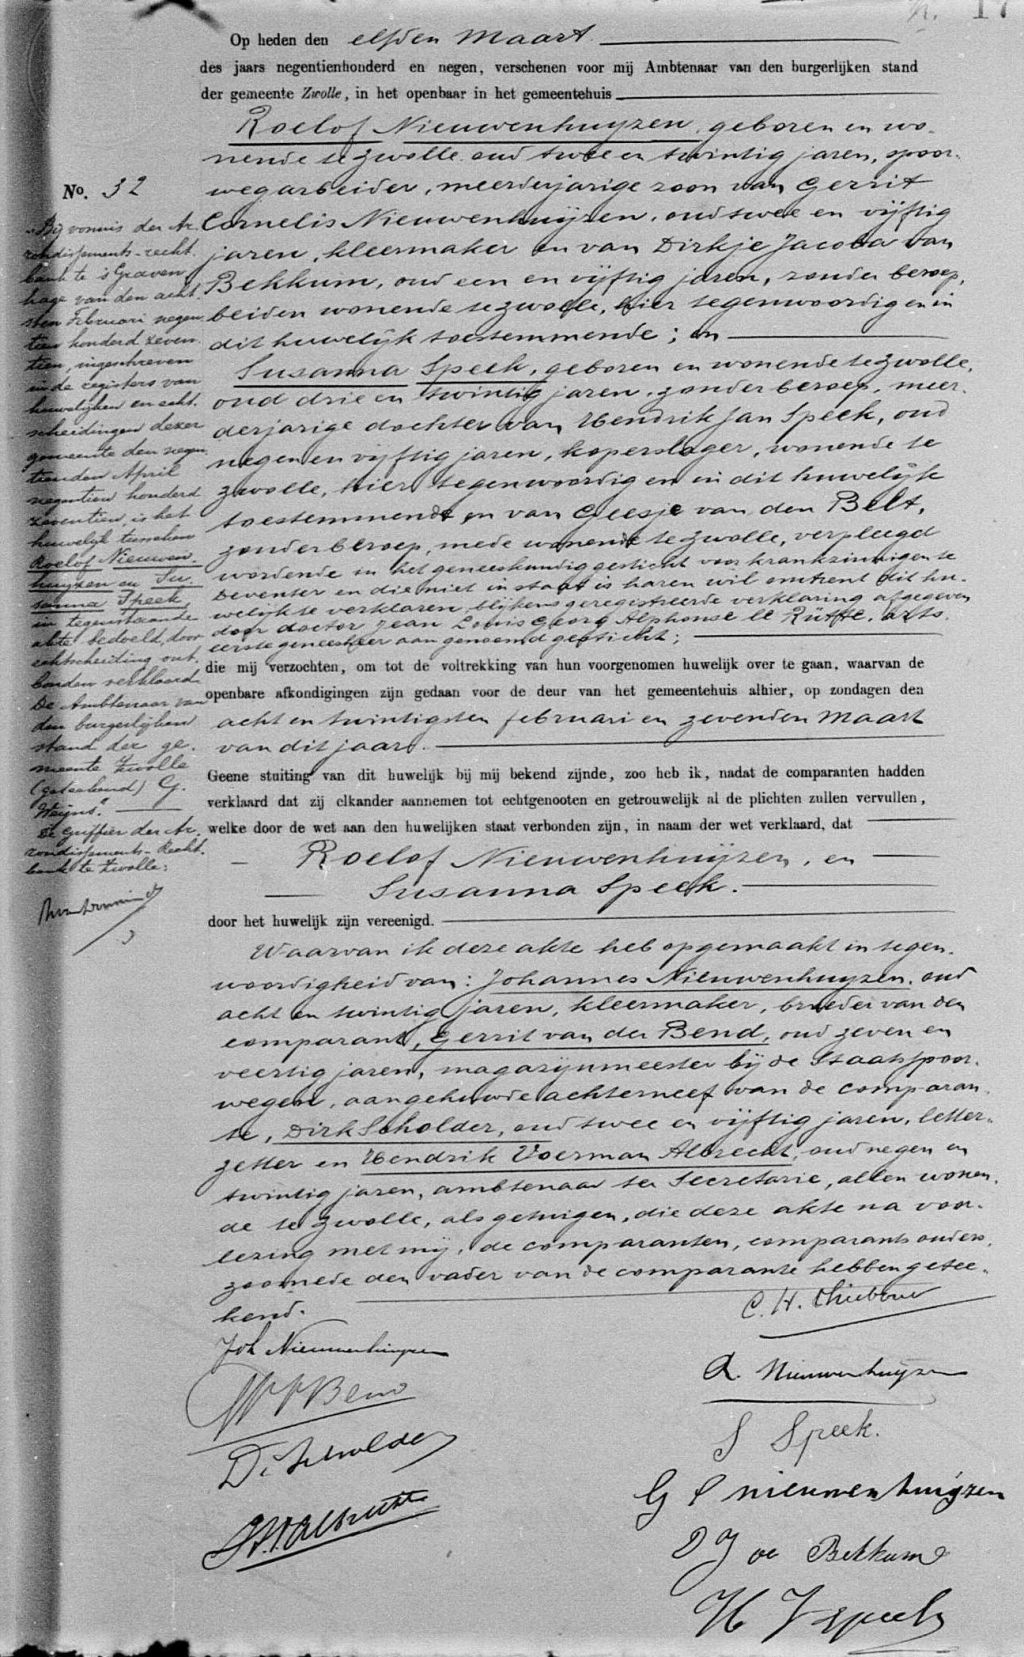 17
Op heden den elfden Maart
des jaars negentienhonderd en negen, verschenen voor mij Ambtenaar van den burgerlijken stand
der gemeente Zwolle, in het openbaar in het gemeentehuis
Roelof Nieuwenhuyzen, geboren en wo-
nende te zwolle, oud twee en twintig jaren, spoor-
wegarbeider, meerderjarige zoon van Gerrit
Cornelis Nieuwenhuijzen, oud twee en vijftig
jaren, kleermaker en van Dirkje Jacoba van
Bekkum, oud een en vijftig jaren, zonder beroep,
beiden wonende te zwolle, hier tegenwoordig en in
dit huwelijk toestemmende; en
Susanna Speek, geboren en wonende te zwolle,
oud drie en twintig jaren, zonder beroep, meer-
derjarige dochter van Hendrik Jan Speek, oud
negen en vijftig jaren, koperslager, wonende te
zwolle, hier tegenwoordig en in dit huwelijk
toestemmende en van Geesje van den Belt,
zonder beroep, mede wonende te zwolle, verpleegd
wordende in het geneeskundig gesticht voor krankzinnigen te
Deventer en die niet in staat is haren wil omtrent dit hu-
welijk te verklaren, blijkens geregistreerde verklaring afgegeven
door doctor Jean Louis Georg Alphonse le Rütte, arts,
eerste geneesheer aan genoemd gesticht;
die mij verzochten, om tot de voltrekking van hun voorgenomen huwelijk over te gaan, waarvan de
openbare afkondigingen zijn gedaan voor de deur van het gemeentehuis alhier, op zondagen den
acht en twintigsten februari en zevenden Maart
van dit jaar.
Geene stuiting van dit huwelijk bij mij bekend zijnde, zoo heb ik, nadat de comparanten hadden
verklaard dat zij elkander aannemen tot echtgenooten en getrouwelijk al de plichten zullen vervullen,
welke door de wet aan den huwelijken staat verbonden zijn, in naam der wet verklaard, dat
Roelof Nieuwenhuijzen, en
Susanna Speek.
door het huwelijk zijn vereenigd.
Waarvan ik deze akte heb opgemaakt in tegen-
woordigheid van: Johannes Nieuwenhuyzen, oud
acht en twintig jaren, kleermaker, broeder van den
comparant, Gerrit van der Bend, oud zeven en
veertig jaren, magazijnmeester bij de Staatsspoor-
wegen, aangehuwde achterneef van de comparan-
te, Dirk Scholder, oud twee en vijftig jaren, letter-
zetter en Hendrik Voerman Albrecht, oud negen en
twintig jaren, ambtenaar ter Secretarie, allen wonen-
de te zwolle, als getuigen, die deze akte na voor-
lezing met mij, de comparanten, comparants ouders,
zoomede den vader van de comparante hebben getee-
kend.
Joh Nieuwenhuijzen
Bend
D. Scholder
R. Nieuwenhuijzen
S Speek.
G C Nieuwenhuijzen
D J van Bekkum
H J Speek
No. 32
"Bij vonnis der Ar-
rondissements-recht-
bank te 's Graven-
hage van den acht-
sten Februari negen-
tien honderd zeven-
tien, ingeschreven
in de registers van
huwelijken en echt-
scheidingen dezer
gemeente den negen-
tienden April
negentien honderd
zeventien, is het
huwelijk tusschen
Roelof Nieuwen-
huyzen en Su-
sanna Speek,
in tegenstaande
akte bedoeld, door
echtscheiding ont-
bonden verklaard.
De Ambtenaar van
den burgerlijken
stand der ge-
meente Zwolle
(geteekend) G.
Weijns".
De Griffier der Ar-
rondissements-Recht-
bank te Zwolle: